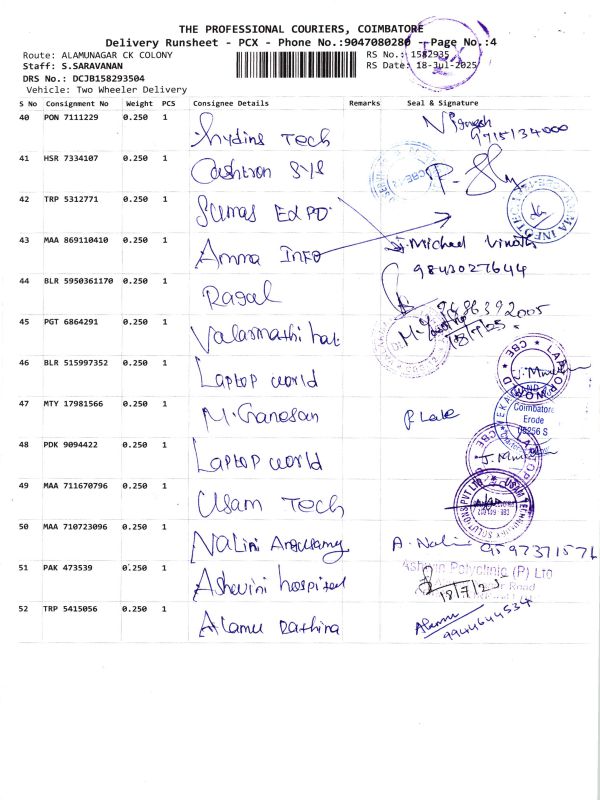 THE PROFESSIONAL COURIERS, COIMBATORE
Delivery Runsheet - PCX - Phone No.:9047080280 - Page No.:4
Route: ALAMUNAGAR CK COLONY RS No.: 1582935
Staff: S.SARAVANAN RS Date: 18-Jul-2025
DRS No.: DCJB158293504
Vehicle: Two Wheeler Delivery
S No Consignment No Weight PCS Consignee Details Remarks Seal & Signature
40 PON 7111229 0.250 1 Tech 9715134000
41 HSR 7334107 0.250 1 Cashtron SYS
42 TRP 5312771 0.250 1 Sumas
43 MAA 869110410 0.250 1 Amma INFO Michael Vinoth
9843027644
44 BLR 5950361170 0.250 1 Ragal
9486392005
45 PGT 6864291 0.250 1 Valarmathi 18/7/25
46 BLR 515997352 0.250 1 Laptop world
47 MTY 17981566 0.250 1 M. Ganesan P. Late
Coimbatore
Erode
48 PDK 9094422 0.250 1 Laptop world
49 MAA 711670796 0.250 1 Usam Tech
50 MAA 710723096 0.250 1 Nalini A. Nalini 9597371571
51 PAK 473539 0.250 1 Ashwini hospital Ashwin Polyclinic (P) Ltd
18/7/25
52 TRP 5415056 0.250 1 Alamu Rathina Alamu
9944644534